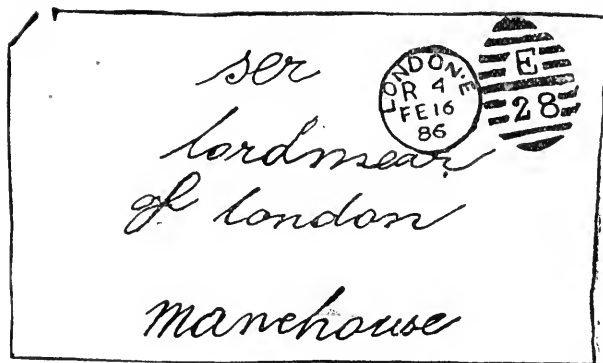 ser
LONDON·E
R 4
FE 16
86
E
28
lordmear
of london
manehouse